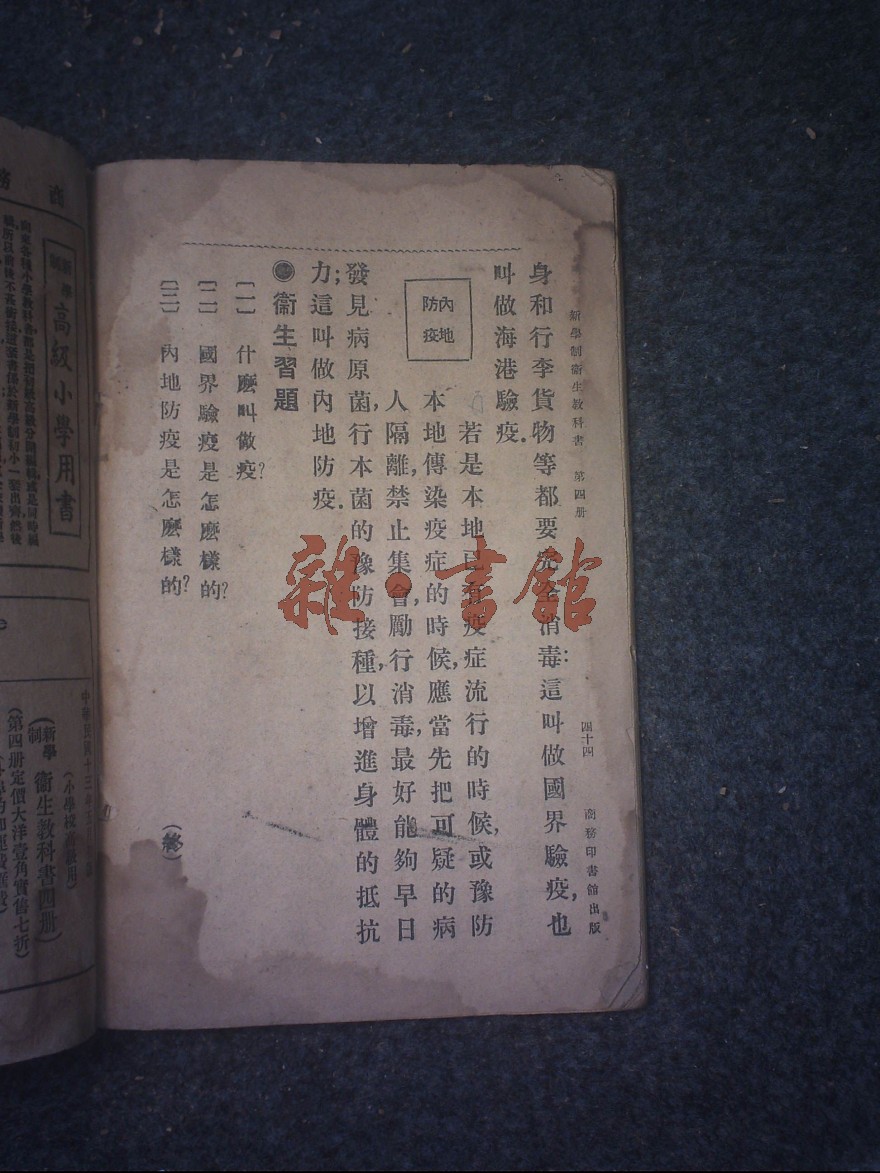 新學制衞生教科書 第四册 四十四 商務印書館出版
身和行李貨物等都要完全消毒：這叫做國界驗疫，也
叫做海港驗疫．
內地防疫
若是本地已有疫症流行的時候，或豫防
本地傳染疫症的時候，應當先把可疑的病
人隔離，禁止集會，勵行消毒，最好能夠早日
發見病原菌，行本菌的豫防接種，以增進身體的抵抗
力；這叫做內地防疫．
●衞生習題
〔一〕什麽叫做疫？
〔二〕國界驗疫是怎麽樣的？
〔三〕內地防疫是怎麽樣的？
(終)
雜·書館
商務
新學制
高級小學用書
中華民國十三年
(小學校高級用)
(新學制 衞生教科書四册)
(第四册定價大洋壹角實售七折)